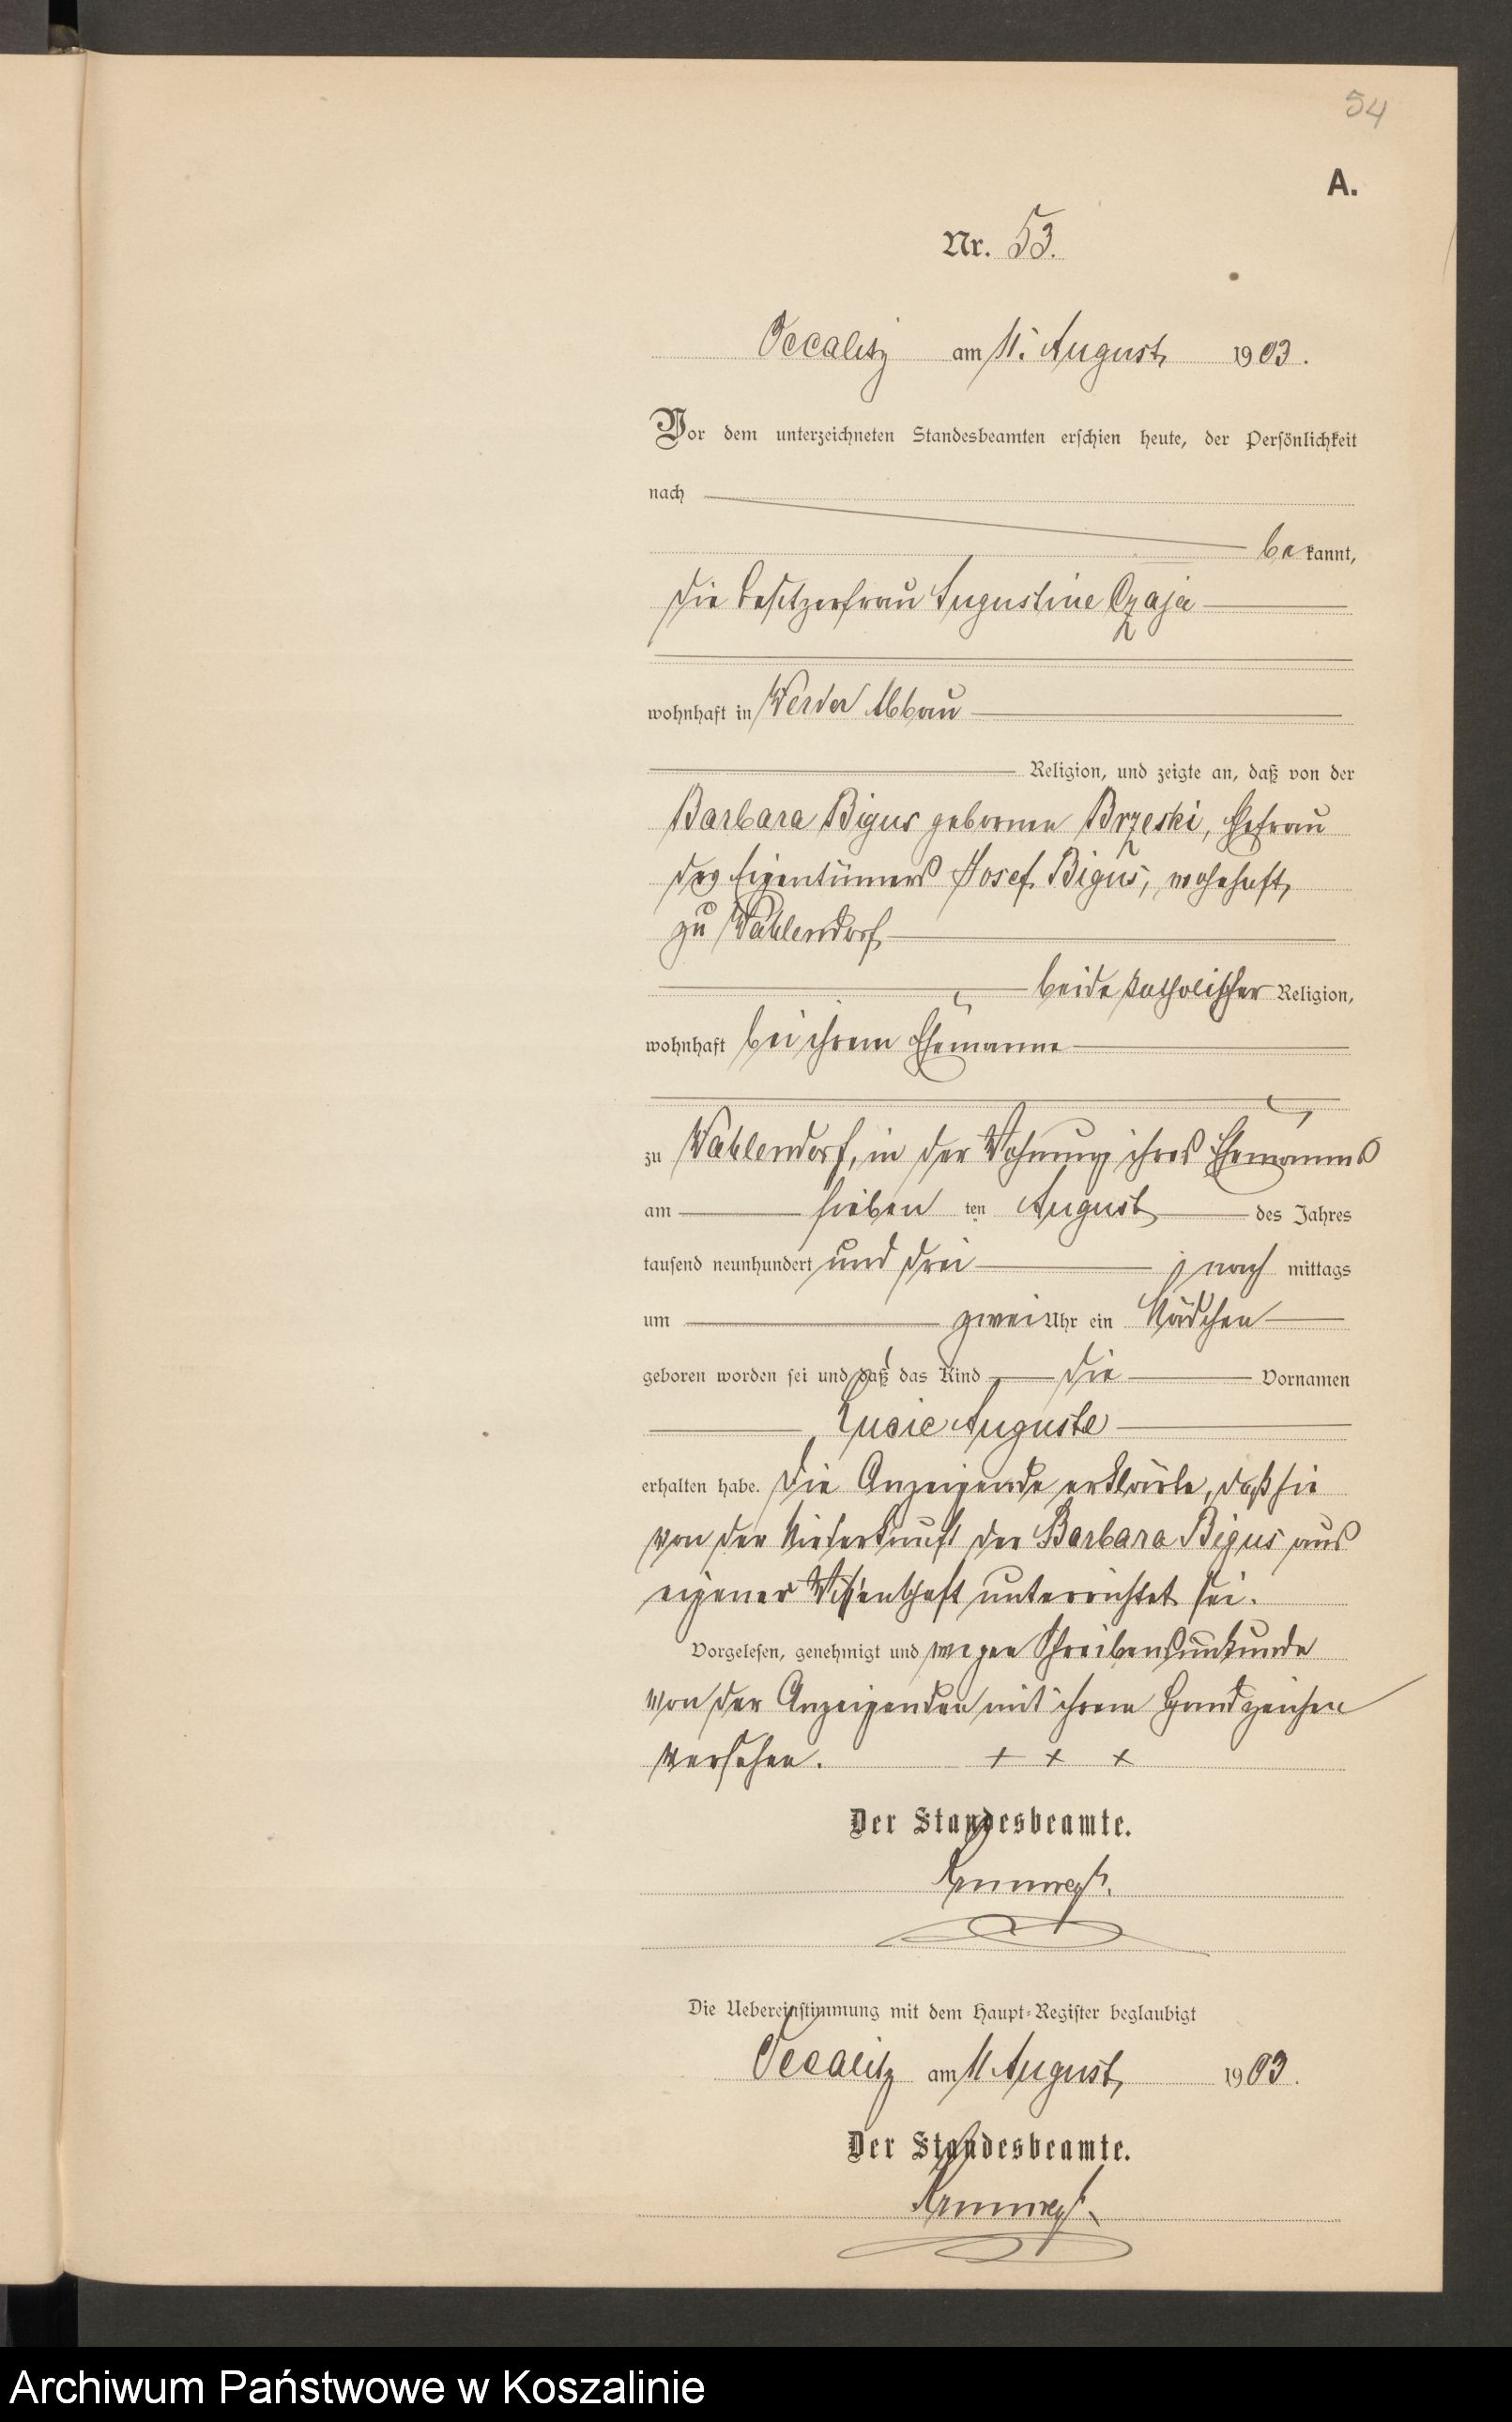 54
A.
Nr. 53.
Oecalitz am 11. August 1903.
Vor dem unterzeichneten Standesbeamten erschien heute, der Persönlichkeit
nach
be kannt,
die Besitzerfrau Augustine Czaja
wohnhaft in Werder Abbau
Religion, und zeigte an, daß von der
Barbara Bigus geborenen Brzeski, Ehefrau
des Eigentümers Josef Bigus, wohnhaft
zu Wahlendorf
beide katholischer Religion,
wohnhaft bei ihrem Ehemanne
zu Wahlendorf, in der Wohnung ihres Ehemanns
am sieben ten August des Jahres
tausend neunhundert und drei nach mittags
um zwei Uhr ein Mädchen
geboren worden sei und daß das Kind die Vornamen
Lucie Auguste
erhalten habe. Die Anzeigende erklärte, daß sie
von der Niederkunft der Barbara Bigus aus
eigener Wissenschaft unterrichtet sei.
Vorgelesen, genehmigt und wegen Schreibensunkunde
von der Anzeigenden mit ihrem Handzeichen
versehen. + + +
Der Standesbeamte.
Die Uebereinstimmung mit dem Haupt-Register beglaubigt
Oecalitz am 11 August 1903.
Der Standesbeamte.
Archiwum Państwowe w Koszalinie